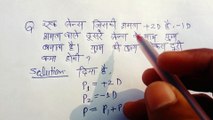 Q एक लेन्स जिसकी क्षमता +2D है, -1D
क्षमता वाले दूसरे लेन्स के साथ युग्म
बनाता है। युग्म की
क्या होगी ?
Solution: दिया है,
P₁ = +2 D
P₂ = -1 D
P = P₁ + P